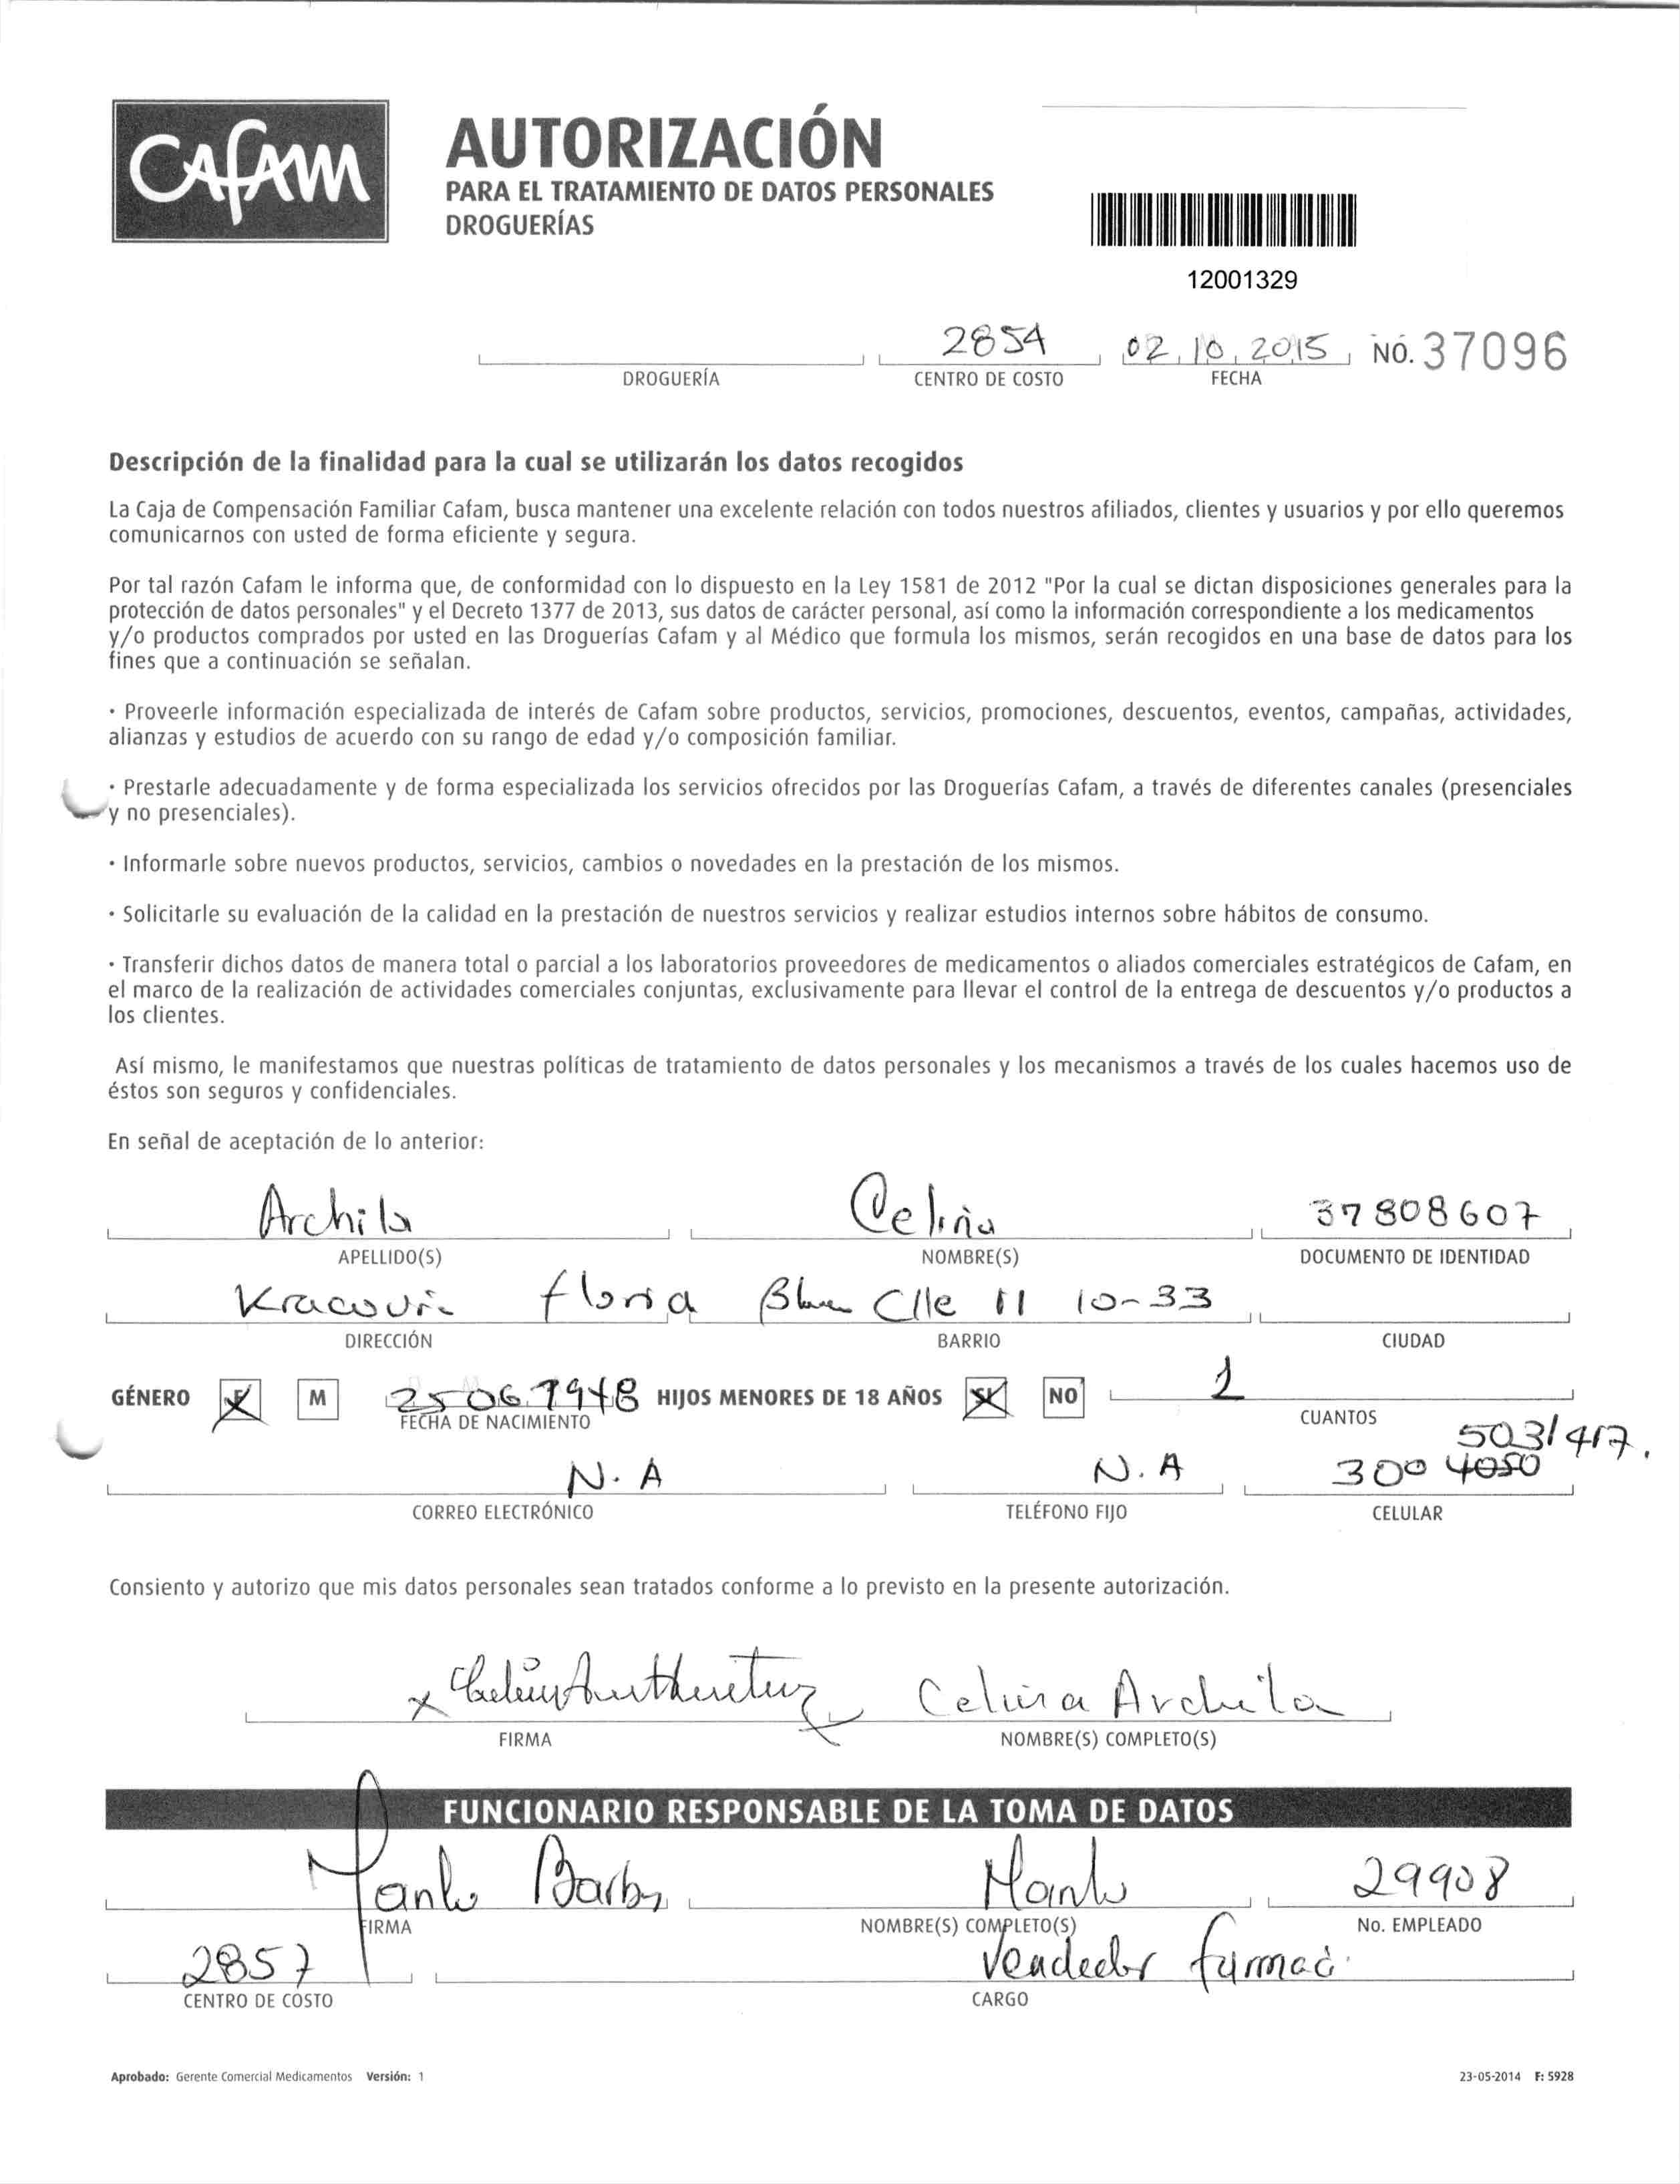 CAFAM
AUTORIZACIÓN
PARA EL TRATAMIENTO DE DATOS PERSONALES
DROGUERÍAS
12001329
2854 02.10.2015 NO. 37096
DROGUERÍA CENTRO DE COSTO FECHA
Descripción de la finalidad para la cual se utilizarán los datos recogidos
La Caja de Compensación Familiar Cafam, busca mantener una excelente relación con todos nuestros afiliados, clientes y usuarios y por ello queremos
comunicarnos con usted de forma eficiente y segura.
Por tal razón Cafam le informa que, de conformidad con lo dispuesto en la Ley 1581 de 2012 "Por la cual se dictan disposiciones generales para la
protección de datos personales" y el Decreto 1377 de 2013, sus datos de carácter personal, así como la información correspondiente a los medicamentos
y/o productos comprados por usted en las Droguerías Cafam y al Médico que formula los mismos, serán recogidos en una base de datos para los
fines que a continuación se señalan.
· Proveerle información especializada de interés de Cafam sobre productos, servicios, promociones, descuentos, eventos, campañas, actividades,
alianzas y estudios de acuerdo con su rango de edad y/o composición familiar.
· Prestarle adecuadamente y de forma especializada los servicios ofrecidos por las Droguerías Cafam, a través de diferentes canales (presenciales
y no presenciales).
· Informarle sobre nuevos productos, servicios, cambios o novedades en la prestación de los mismos.
· Solicitarle su evaluación de la calidad en la prestación de nuestros servicios y realizar estudios internos sobre hábitos de consumo.
· Transferir dichos datos de manera total o parcial a los laboratorios proveedores de medicamentos o aliados comerciales estratégicos de Cafam, en
el marco de la realización de actividades comerciales conjuntas, exclusivamente para llevar el control de la entrega de descuentos y/o productos a
los clientes.
Así mismo, le manifestamos que nuestras políticas de tratamiento de datos personales y los mecanismos a través de los cuales hacemos uso de
éstos son seguros y confidenciales.
En señal de aceptación de lo anterior:
Archila Celina 37808607
APELLIDO(S) NOMBRE(S) DOCUMENTO DE IDENTIDAD
Clle 11 10-33
DIRECCIÓN BARRIO CIUDAD
GÉNERO M 25 06 1948 HIJOS MENORES DE 18 AÑOS NO 1
FECHA DE NACIMIENTO CUANTOS
5031417.
N.A N.A 300 4050
CORREO ELECTRÓNICO TELÉFONO FIJO CELULAR
Consiento y autorizo que mis datos personales sean tratados conforme a lo previsto en la presente autorización.
x Celina Archila
FIRMA NOMBRE(S) COMPLETO(S)
FUNCIONARIO RESPONSABLE DE LA TOMA DE DATOS
29908
FIRMA NOMBRE(S) COMPLETO(S) No. EMPLEADO
2857 Vendedor
CENTRO DE COSTO CARGO
Aprobado: Gerente Comercial Medicamentos Versión: 1 23-05-2014 F: 5928